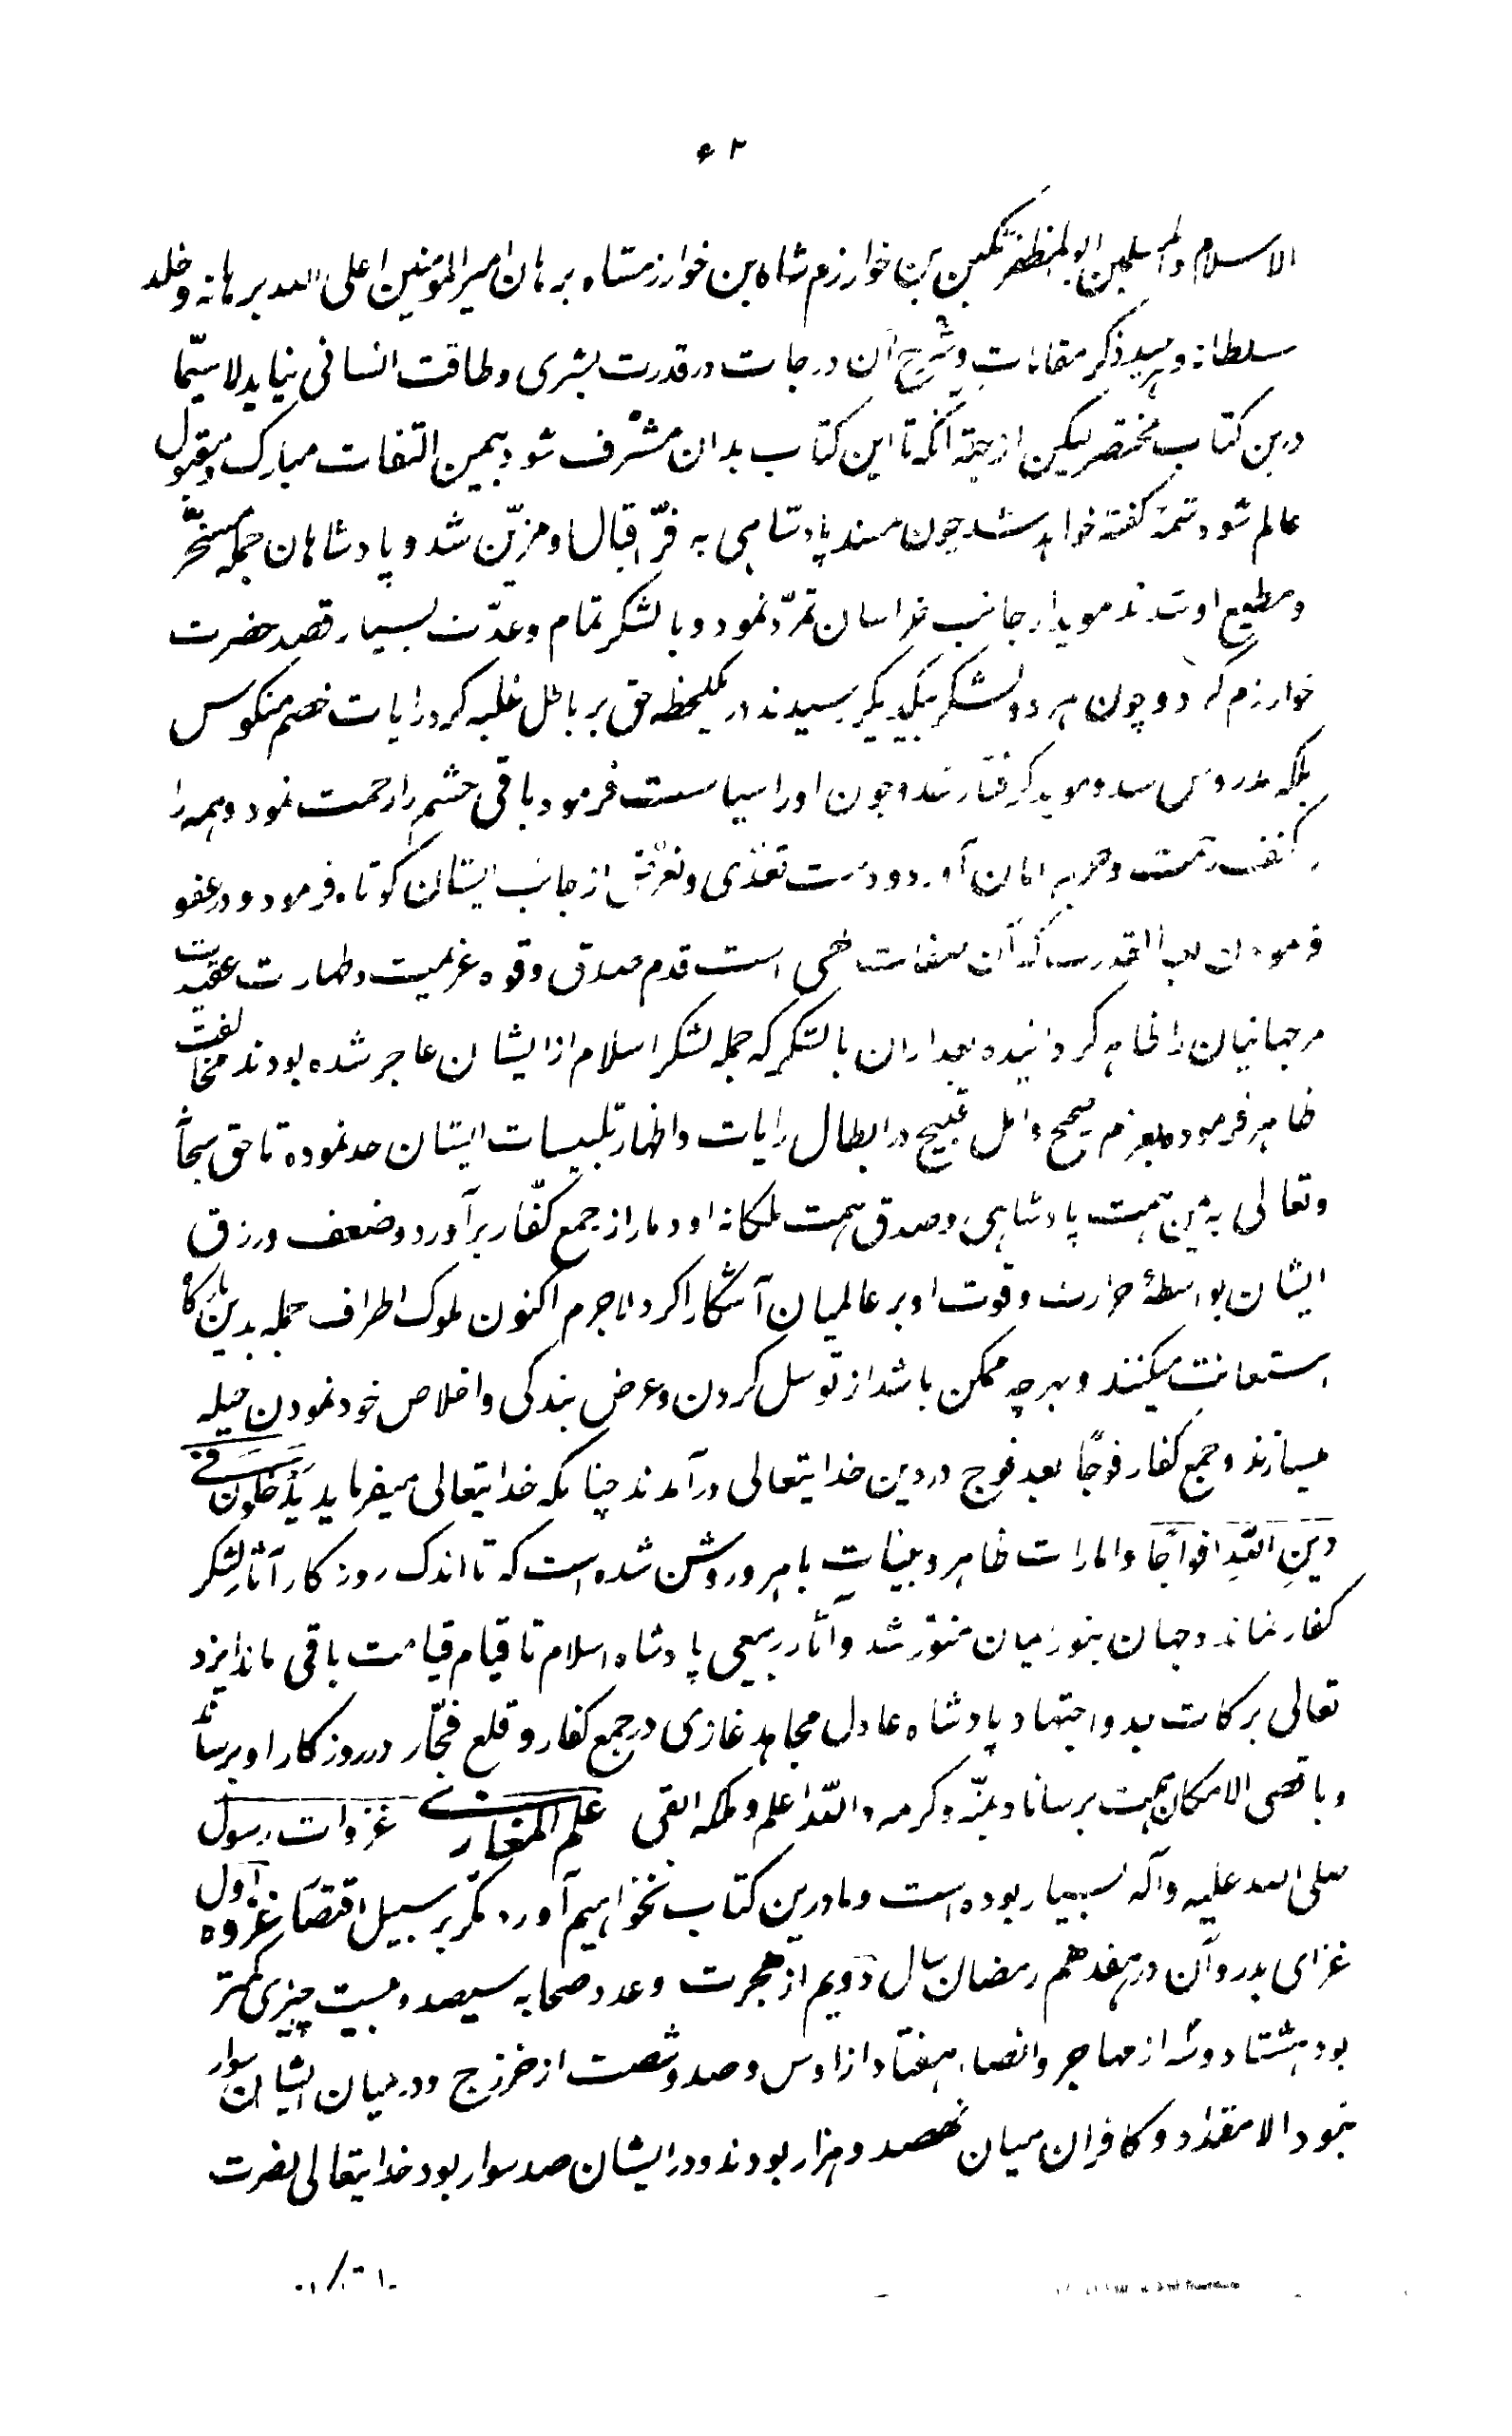 ۶۲
الاسلام والمسلمین ابوالمظفر تکین بن خوارزم شاه بن خوارزمشاه برهان امیرالمومنین اعلی الله برهانه و خلد
سلطانه و ذکر مقامات و شرح آن درجات در قدرت بشری و طاقت انسانی نیاید لاسیّما
درین کتاب مختصر لیکن از جهة آنکه تا این کتاب بدان مشرّف شود بیمن التفات مبارک و مقبول
عالم شود تتمهٔ گفته خواهد شد چون مسند پادشاهی به فرّ اقبال او مزیّن شد و پادشاهان جمله مسخّر
و مطیع او شدند موید از جانب خراسان تمرّد نمود و با لشکر تمام و عدّت بسیار قصد حضرت
خوارزم کرد و چون هر دو لشکر بیکدیگر رسیدند در یکلحظه حق بر باطل غلبه کرد رایات خصم منکوس
بلکه مدروس شد و موید گرفتار شد و چون او را سیاست فرمود باقی حشم را رحمت نمود و همه را
کنف رحمت و امان آورد و دست تعدّی و تعرّض از جانب ایشان کوتاه فرمود و در عفو
فرمودن القدرة که آن صفات است قدم صدق و قوه عزیمت و طهارت عقیدت
مر جهانیان را ظاهر گردانیده بعد از آن با لشکر که جمله لشکر اسلام از ایشان عاجز شده بودند مخالفت
ظاهر فرموده بعزم صحیح و امل فسیح در ابطال رایات و اظهار تلبیسات ایشان جد نموده تا حق سبحانه
و تعالی به یمن همت پادشاهی و صدق همت ملکانه او دمار از جمع کفّار برآورد و ضعف و رزق
ایشان بواسطهٔ حرارت و قوت او بر عالمیان آشکارا کرد لاجرم اکنون ملوک اطراف جمله بدین بارگاه
استعانت میکنند و بهرچه ممکن باشد از توسل کردن و عرض بندگی و اخلاص خود نمودن حیله
میسازند و جمع کفار فوجًا بعد فوج در دین خدایتعالی درآمدند چنانکه خدایتعالی میفرماید یَدْخُلُونَ فی
دینِ اللهِ افواجًا و امارات ظاهر و بینات باهر و روشن شده است که تا اندک روزگار آثار لشکر
کفار نماند و جهان بنور ایمان منوّر شد و آثار سعی پادشاه اسلام تا قیام قیامت باقی ماند ایزد
تعالی برکات جد و اجتهاد پادشاه عادل مجاهد غازی در جمع کفار و قلع فجّار در روزگار او برساند
و باقصی الامکان همت برساناد بمنّه و کرمه والله اعلم و ملکه ابقی علم المغازی غزوات رسول
صلی الله علیه و آله بسیار بوده است و ما درین کتاب نخواهیم آورد مگر بر سبیل اقتصار غزوه اول
غزای بدر و آن در هفدهم رمضان سال دویم از هجرت و عدد صحابه سیصد و بیست چیزی کمتر
بود هشتاد و سه از مهاجر و انصار هفتاد از اوس و صد و شصت از خزرج و در میان ایشان سوار
نبود الا مقداد و کافران میان نهصد و هزار بودند و در ایشان صد سوار بود خدایتعالی نصرت